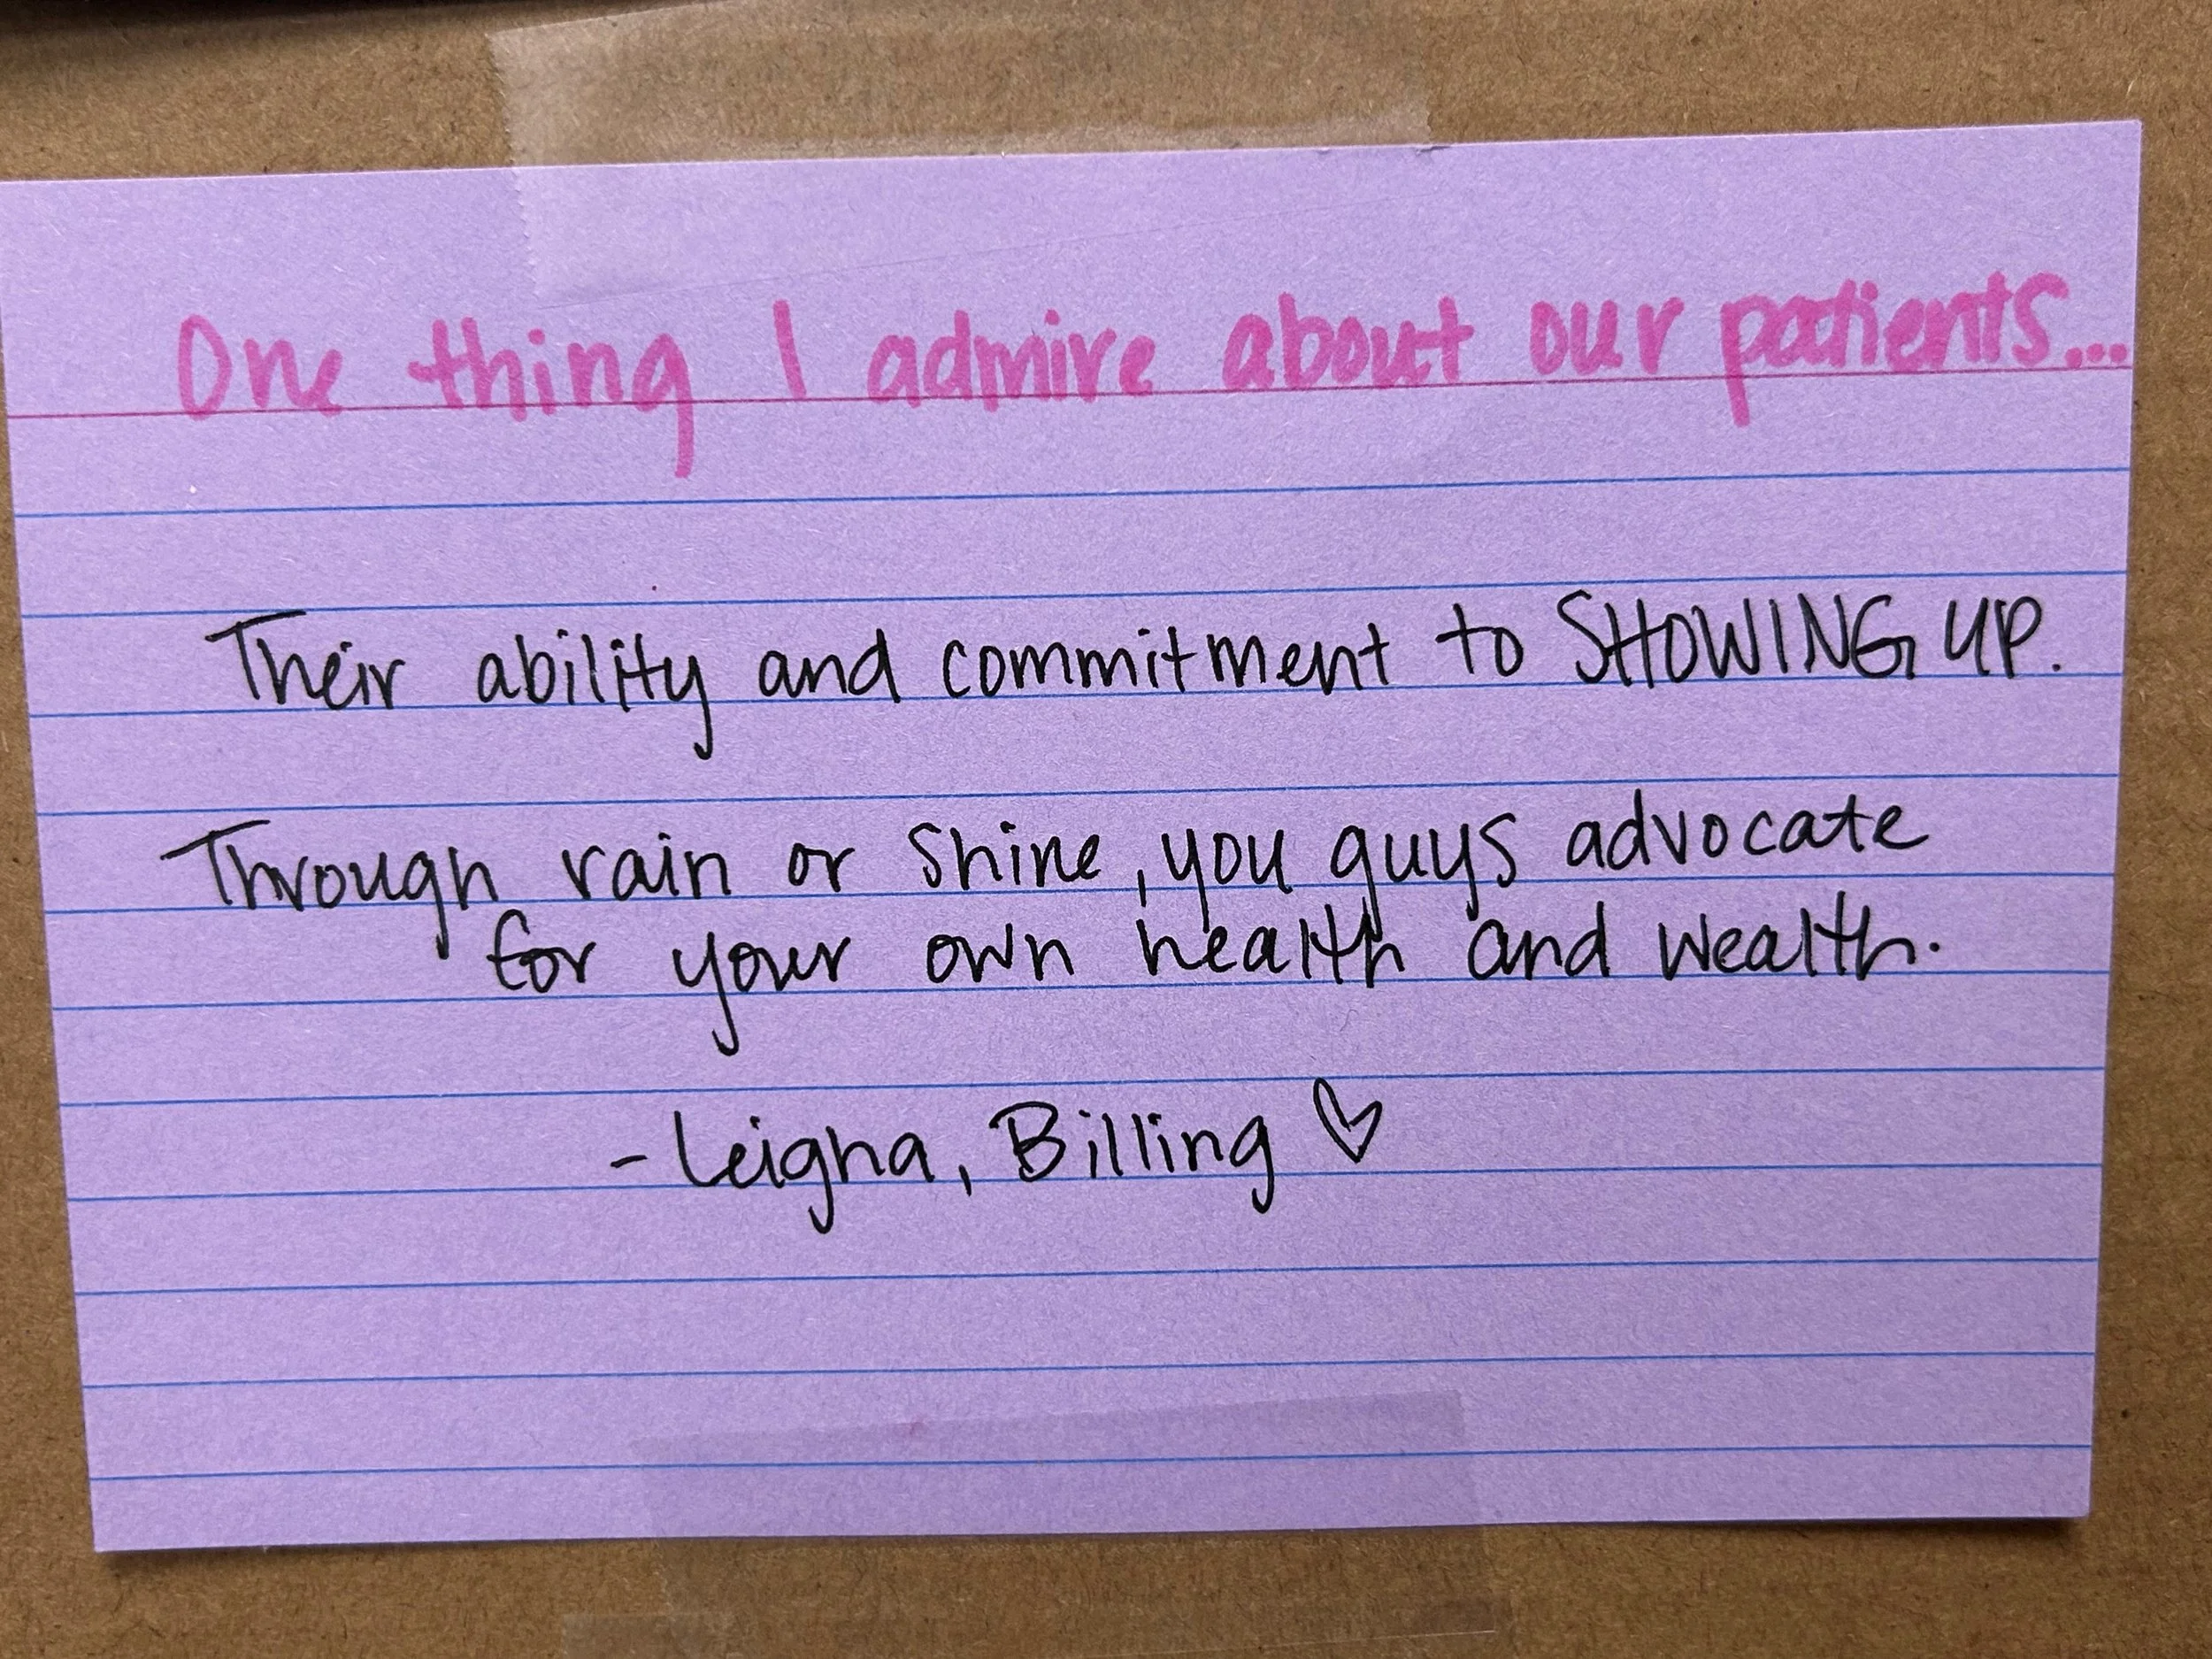 One thing I admire about our patients...
Their ability and commitment to SHOWING UP.
Through rain or shine, you guys advocate
for your own health and wealth.
- Leigha, Billing ♡